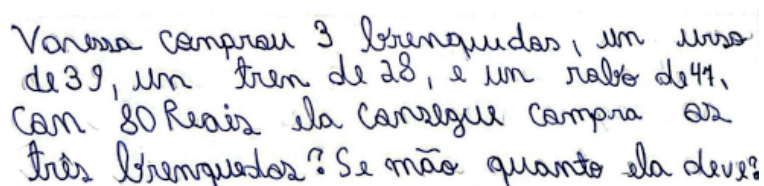 Vanessa comprou 3 brenquedos, un urso
de 39, un tren de 28, e un robo de 47,
con 80 Reais ela consegue compra os
três brenquedos? Se mão quanto ela deve?